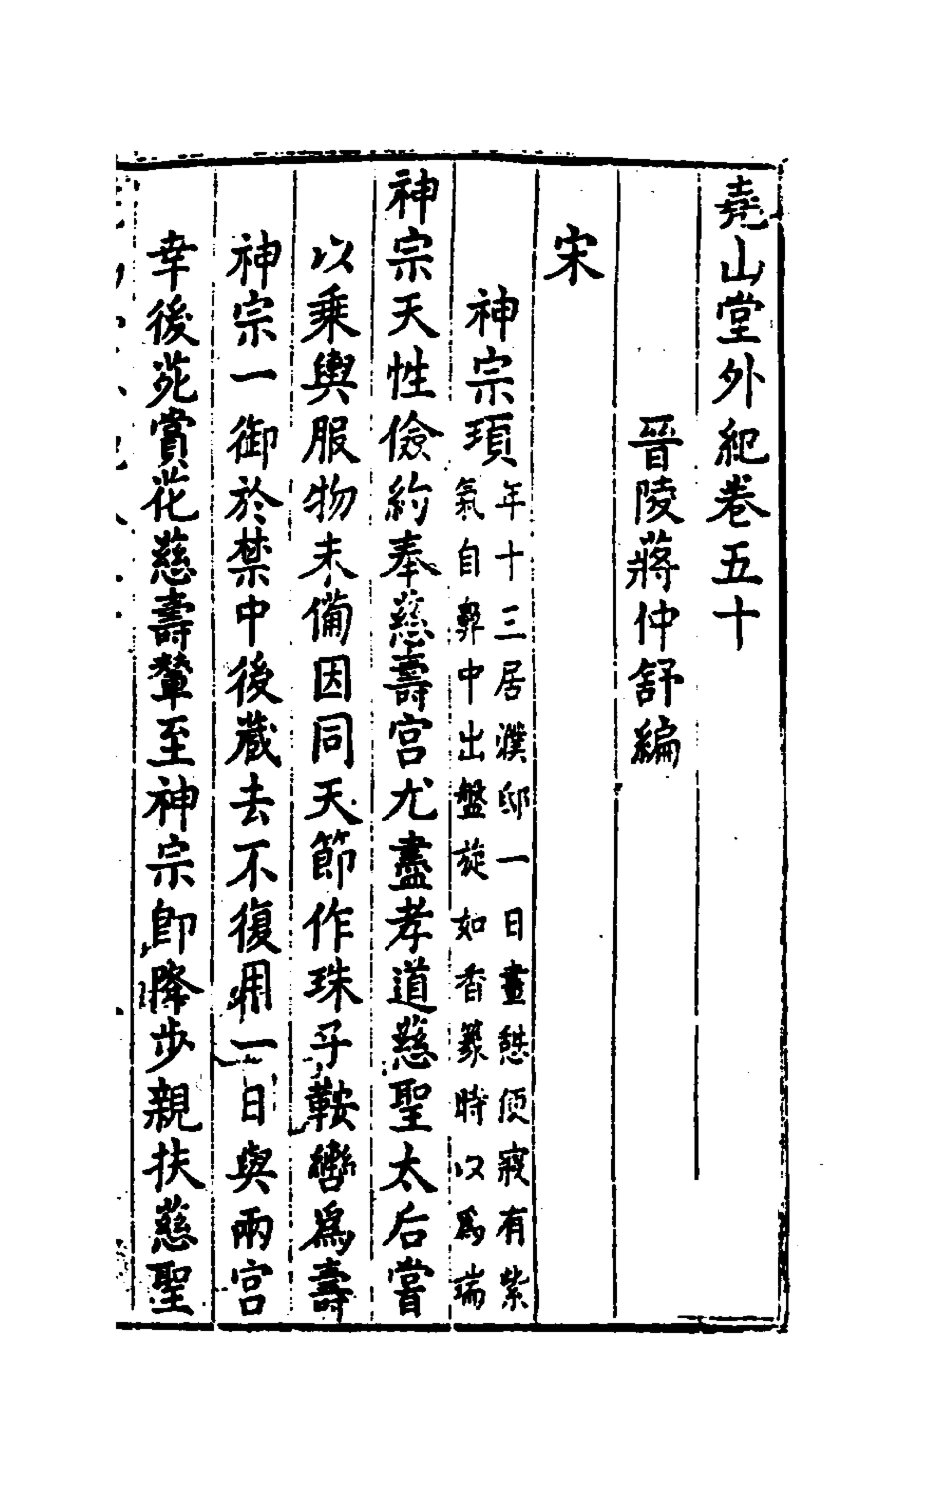 堯山堂外紀卷五十
晉陵蔣仲舒編
宋
神宗頊
年十三居濮邸一日晝憩便寢有紫
氣自鼻中出盤旋如香篆時以爲瑞
神宗天性儉約奉慈壽宮尤盡孝道慈聖太后嘗
以乘輿服物未備因同天節作珠子鞍轡爲壽
神宗一御於禁中後藏去不復用一日與兩宮
幸後苑賞花慈壽輦至神宗卽降步親扶慈聖